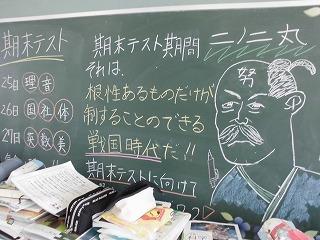 期末テスト
25日 理 音
26日 国 社 体
27日 英 数 美
期末テスト期間
それは、
根性あるものだけが
制することのできる
戦国時代だ!!
期末テストに向けて
二ノ二丸
努